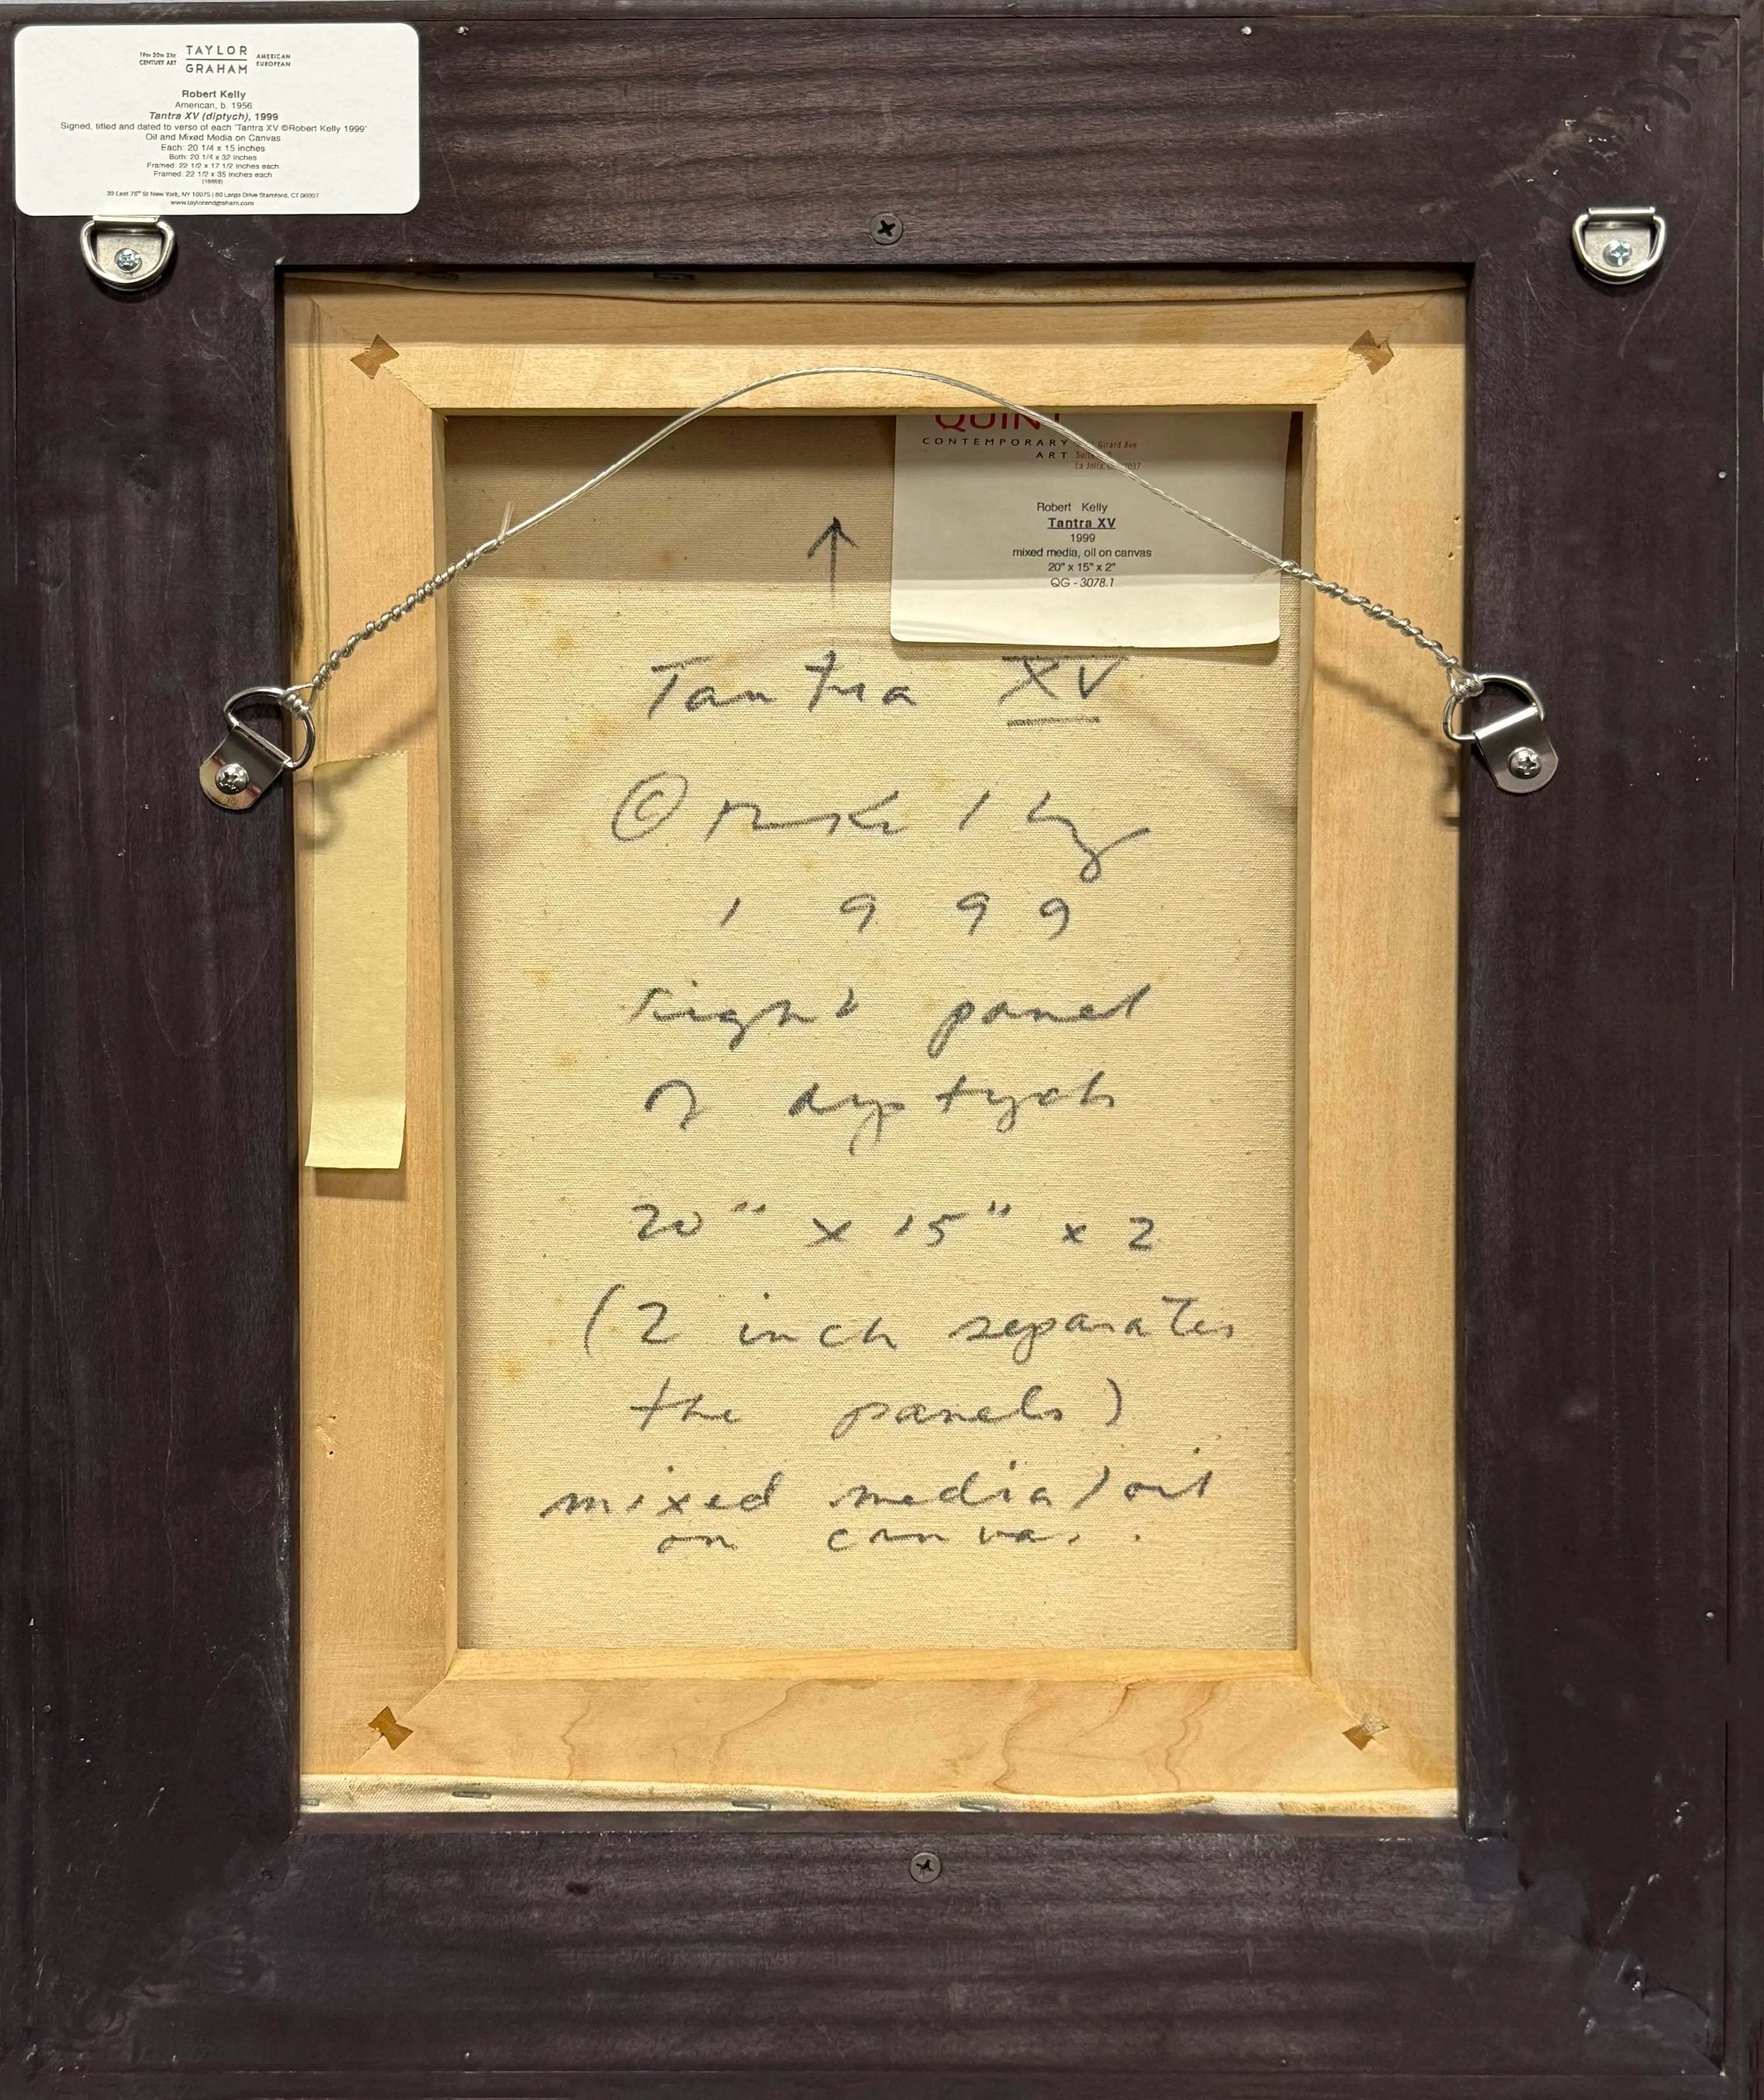 19TH 20TH 21ST
CENTURY ART
TAYLOR
GRAHAM
AMERICAN
EUROPEAN
Robert Kelly
American, b. 1956
Tantra XV (diptych), 1999
Signed, titled and dated to verso of each 'Tantra XV ©Robert Kelly 1999'
Oil and Mixed Media on Canvas
Each: 20 1/4 x 15 inches
Both: 20 1/4 x 32 inches
Framed: 22 1/2 x 17 1/2 inches each
Framed: 22 1/2 x 35 inches each
32 East 76th St New York, NY 10075 | 80 Largo Drive Stamford, CT 06907
www.taylorandgraham.com
CONTEMPORARY
ART
Girard Ave
La Jolla,
Robert Kelly
Tantra XV
1999
mixed media, oil on canvas
20" x 15" x 2"
QG - 3078.1
Tantra XV
©
1999
right panel
of dyptych
20" x 15" x 2
(2 inch separates
the panels)
mixed media / oil
on canvas.